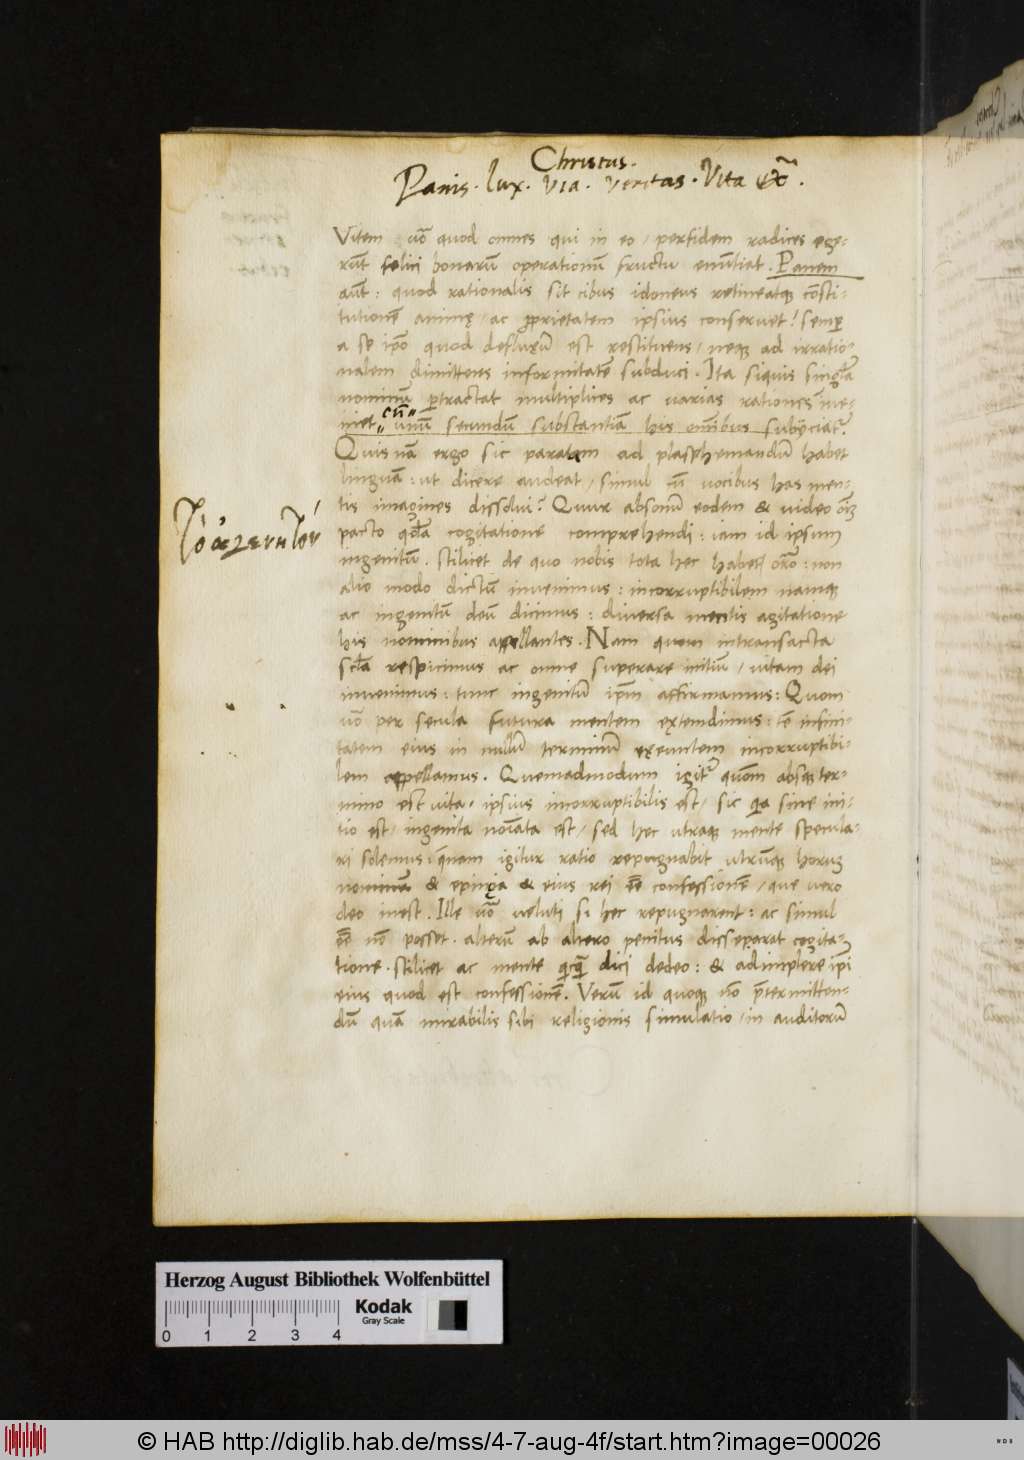 Christus.
Panis. lux. via. veritas. Vita &c̃.
Vitem uõ quod omnes qui in eo / perfidem radices ege-
rũt felici bonarũ operationũ fructu enũtiet. Panem
aũt: quod rationalis sit cibus idoneus retineatq; cõsti-
tutionẽ animę / ac ꝓprietatem ipsius conseruet: semꝑ
a se ip̃o quod defluxũ est restituens / neq; ad irratio-
nalem dimittens informitatẽ subduci. Ita siquis singl̃a
nominũ ꝑtractat multiplices ac uarias rationes ĩue-
niet cũ unũ secundũ substantiã his omĩbus subijciatr̃.
Quis nam ergo sic paratam ad plasphemandũ habet
linguã: ut dicere audeat / simul cũ uocibus has men-
tis imagines dissolui? Quur absonũ eodem & uideo
τὸ ἀγέννητον
pacto cogitatione comprehendi: iam id ipsum
ingenitũ. scilicet de quo nobis tota hec habet̃ or̃o: non
alio modo dictũ inuenimus: incorruptibilem namq;
ac ingenitũ deũ dicimus: diuersa mentis agitatione
his nominibus appellantes. Nam quom intransacta
scl̃a respicimus ac omne superare initiũ / uitam dei
inuenimus: tunc ingenitũ ip̃m affirmamus: Quom
uõ per secula futura mentem extendimus: tũ infini-
tatem eius in nullũ terminũ exeuntem incorruptibi-
lem appellamus. Quemadmodum igitr̃ quom absq; ter-
mino est uita ipsius incorruptibilis est / sic quia sine ini-
tio est / ingenita nomĩata est / sed hec utraq; mente specula-
ri solemus: quẽnam igitur ratio repugnabit utrũq; horum
nominũ & eius rei eẽ confessionẽ / que uero
deo inest. Ille uõ ueluti si hec repugnarent: ac simul
eẽ nõ posset. alterũ ab altero penitus disseparat cogita-
tione. scilicet ac mente dici de deo: & adimplere ip̃i
eius quod est confessionẽ. Verũ id quoq; nõ p̃termitten-
dũ quã mirabilis sibi religionis simulatio / in auditorũ
Herzog August Bibliothek Wolfenbüttel
Kodak
Gray Scale
0 1 2 3 4
© HAB http://diglib.hab.de/mss/4-7-aug-4f/start.htm?image=00026